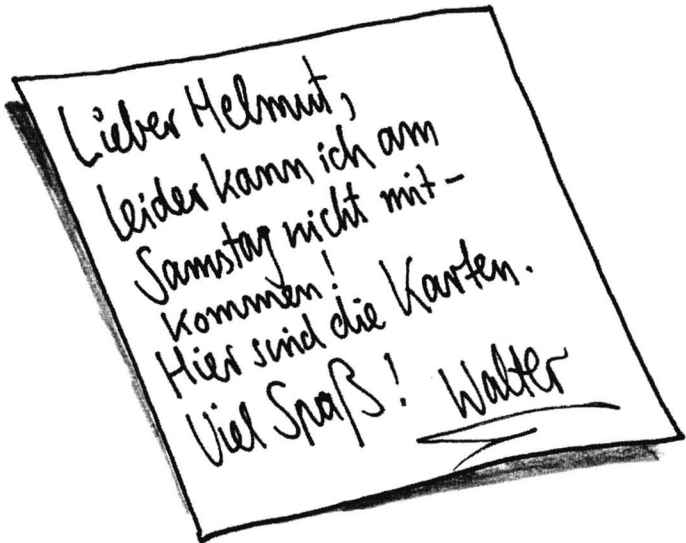 Lieber Helmut,
leider kann ich am
Samstag nicht mit-
kommen!
Hier sind die Karten.
Viel Spaß! Walter